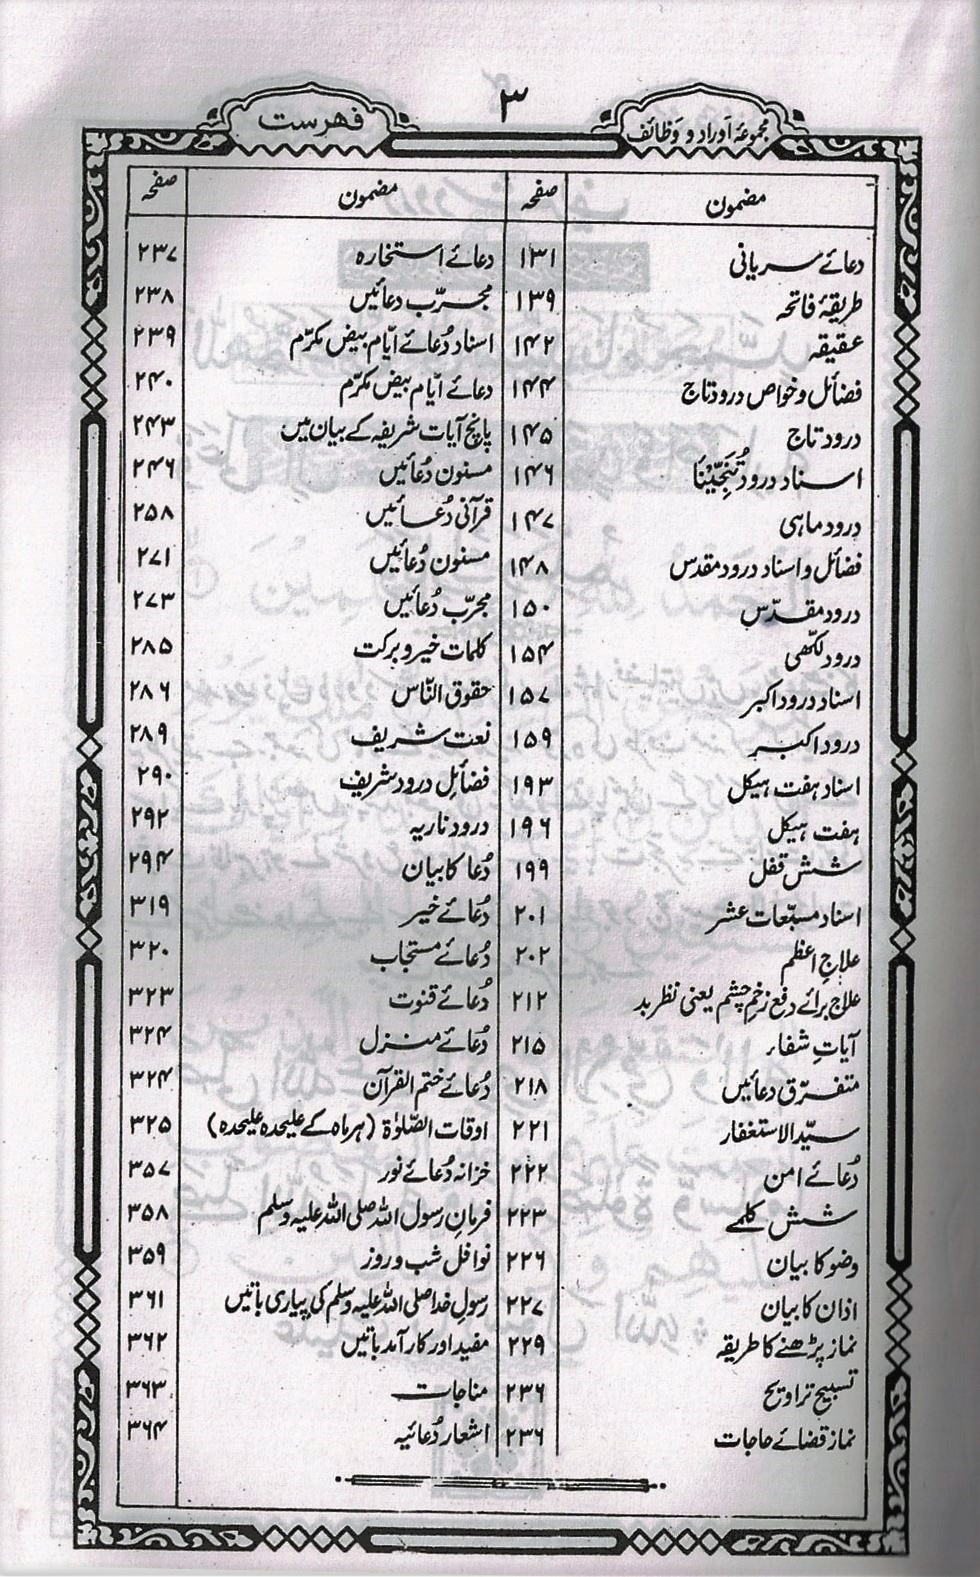 مجموعۂ اَوراد و وَظائف
۳
فہرست
مضمون صفحہ
دعائے سریانی ۱۳۱
طریقۂ فاتحہ ۱۳۹
عقیقہ ۱۴۲
فضائل وخواص درود تاج ۱۴۴
درود تاج ۱۴۵
اسناد درود تُنَجِّیْنَا ۱۴۶
درود ماہی ۱۴۷
فضائل و اسناد درود مقدس ۱۴۸
درود مقدّس ۱۵۰
درود لکّھی ۱۵۴
اسناد درود اکبر ۱۵۷
درود اکبر ۱۵۹
اسناد ہفت ہیکل ۱۹۳
ہفت ہیکل ۱۹۶
شش قفل ۱۹۹
اسناد مسبّعات عشر ۲۰۱
علاجِ اعظم ۲۰۲
علاج برائے دفع زخمِ چشم یعنی نظر بد ۲۱۲
آیاتِ شفاء ۲۱۵
متفرّق دعائیں ۲۱۸
سیّد الاستغفار ۲۲۱
دُعائے امن ۲۲۲
شش کلمے ۲۲۳
وضو کا بیان ۲۲۶
اذان کا بیان ۲۲۷
نماز پڑھنے کا طریقہ ۲۲۹
تسبیح تراویح ۲۳۶
نماز قضائے حاجات ۲۳۶
مضمون صفحہ
دعائے استخارہ ۲۳۷
مجرّب دعائیں ۲۳۸
اسناد دُعائے ایّام بیض مکرّم ۲۳۹
دعائے ایّام بیض مکرّم ۲۴۰
پانچ آیات شریفہ کے بیان میں ۲۴۳
مسنون دُعائیں ۲۴۶
قرآنی دُعائیں ۲۵۸
مسنون دُعائیں ۲۷۱
مجرّب دُعائیں ۲۷۳
کلمات خیر و برکت ۲۸۵
حقوق النّاس ۲۸۶
نعت شریف ۲۸۹
فضائلِ درود شریف ۲۹۰
درود ناریہ ۲۹۲
دُعا کا بیان ۲۹۴
دُعائے خیر ۳۱۹
دُعائے مستجاب ۳۲۰
دُعائے قنوت ۳۲۳
دُعائے منزل ۳۲۴
دُعائے ختم القرآن ۳۲۴
اوقات الصّلوٰۃ (ہر ماہ کے علیحدہ علیحدہ) ۳۲۵
خزانہ دُعائے نور ۳۵۷
فرمانِ رسول اللہ صلی اللہ علیہ وسلم ۳۵۸
نوافل شب و روز ۳۵۹
رسولِ خدا صلی اللہ علیہ وسلم کی پیاری باتیں ۳۶۱
مفید اور کارآمد باتیں ۳۶۲
مناجات ۳۶۳
اشعار دُعائیہ ۳۶۴